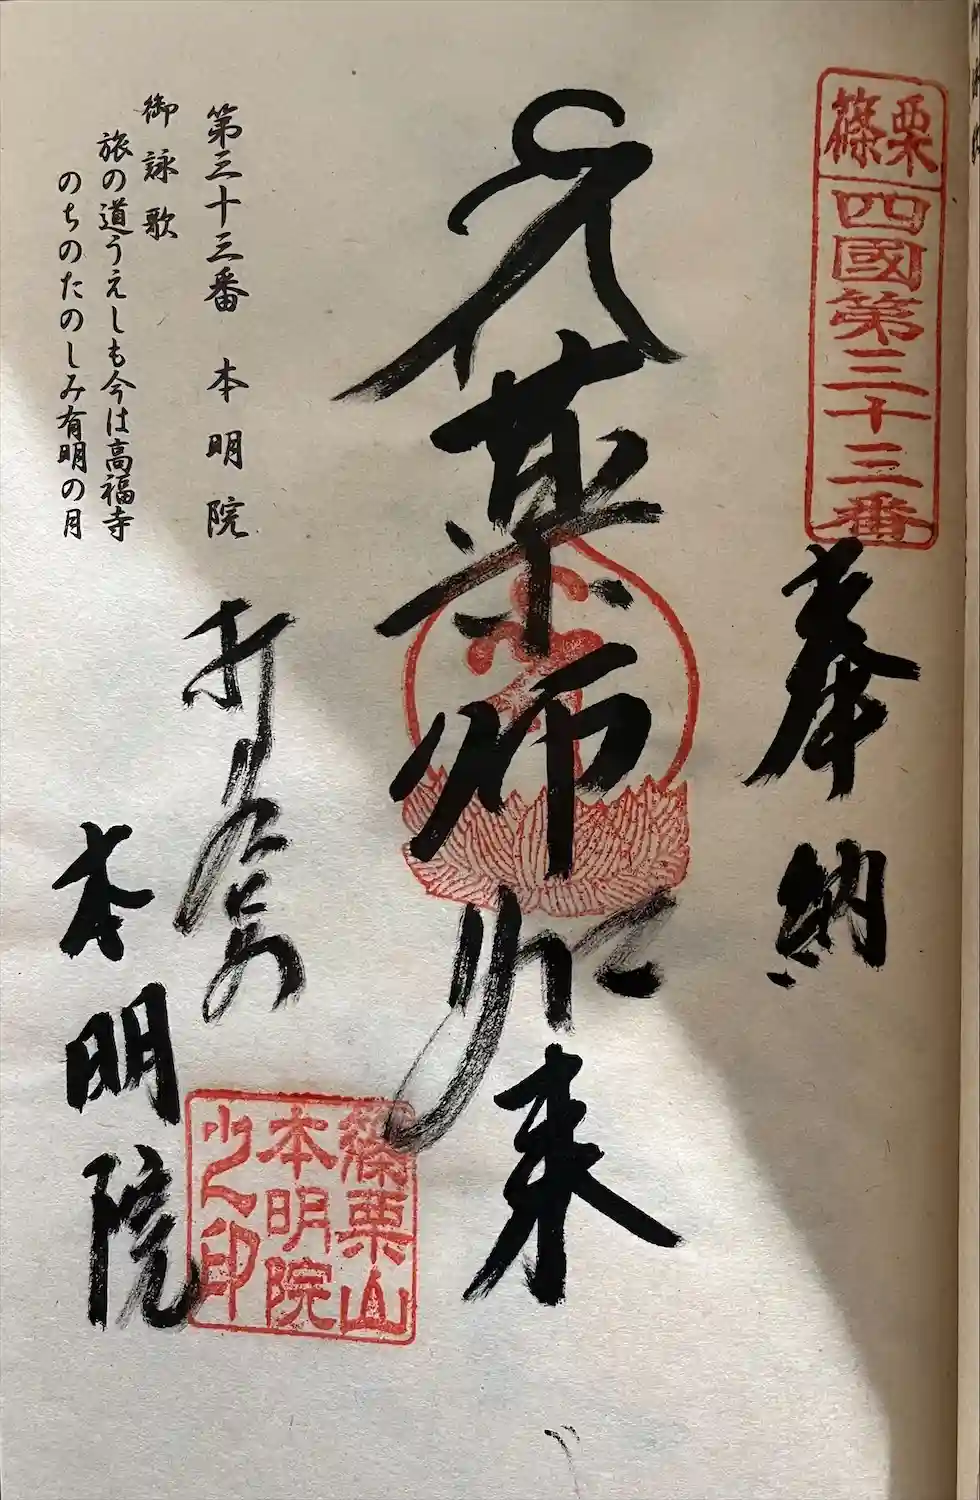 篠栗
四國第三十三番
奉納
薬師如来
篠栗山
本明院
之印
本明院
第三十三番 本明院
御詠歌
旅の道うえしも今は高福寺
のちのたのしみ有明の月